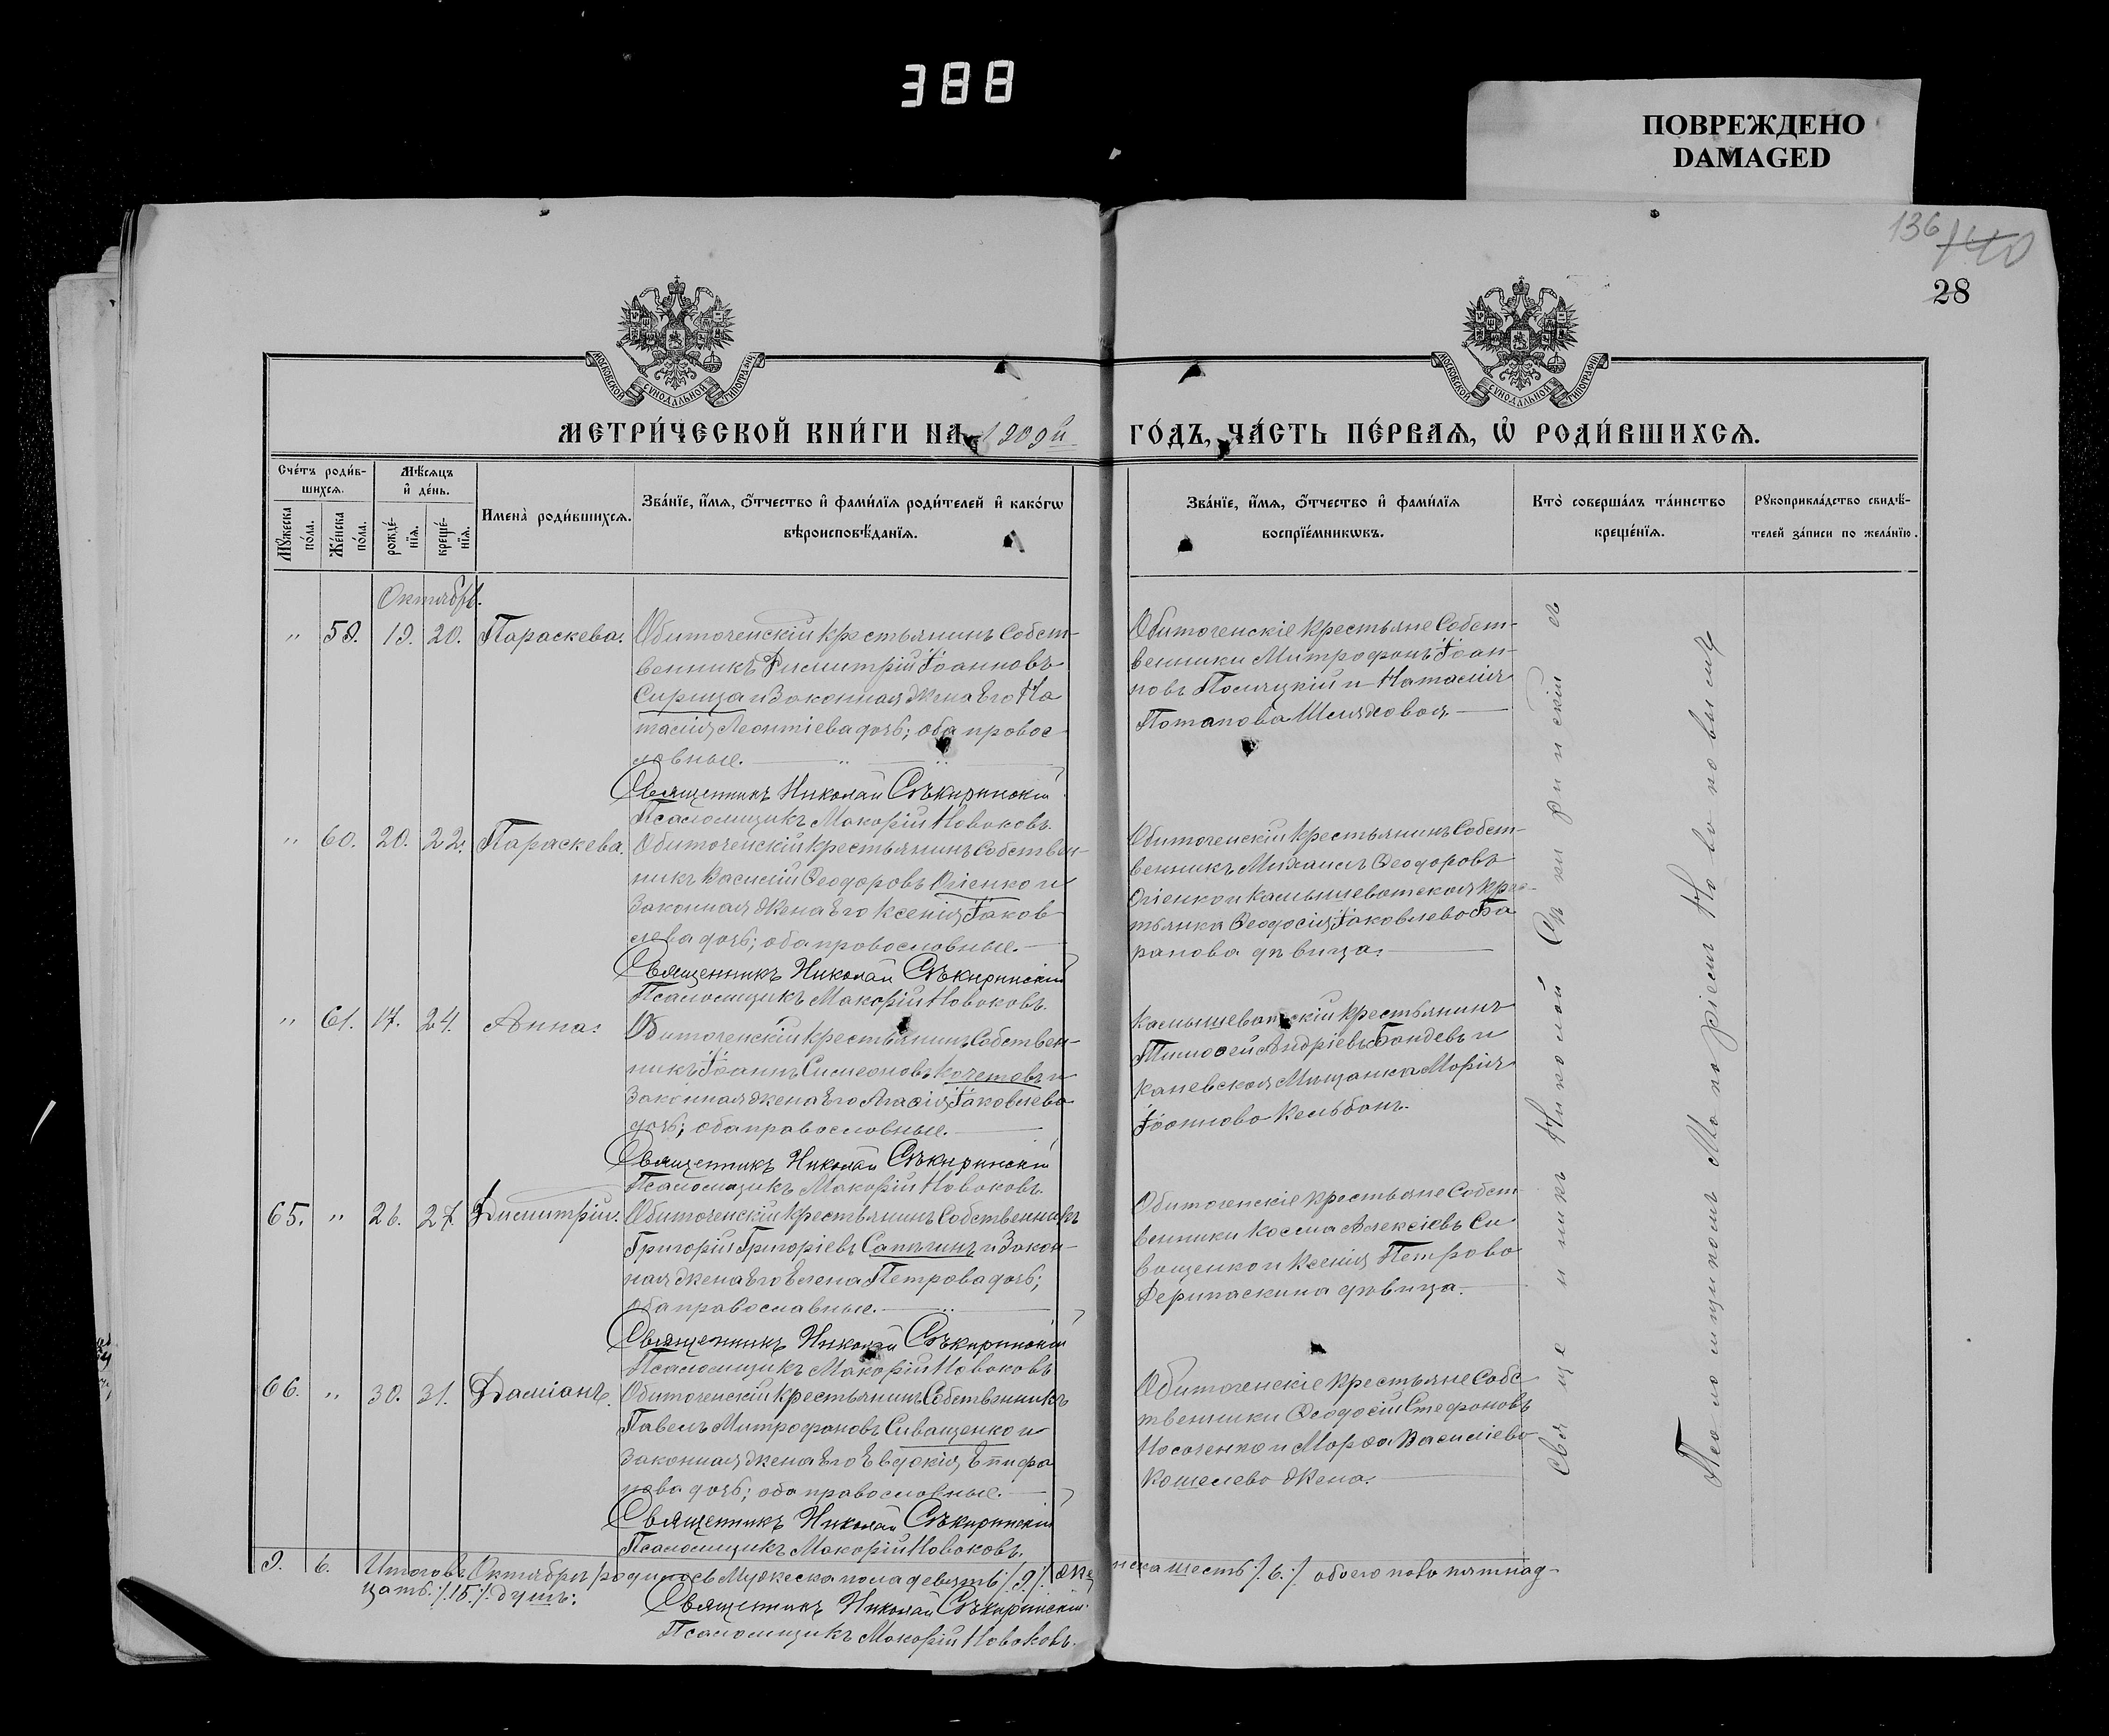 388
ПОВРЕЖДЕНО
DAMAGED
136
140
28
МОСКОВСКОЙ СѴНОДАЛЬНОЙ ТИПОГРАФІИ
МОСКОВСКОЙ СѴНОДАЛЬНОЙ ТИПОГРАФІИ
МЕТРИ́ЧЕСКОЙ КНИ́ГИ НА 1909й
ГО́ДЪ, ЧА́СТЬ ПЕ́РВАЯ, Ѡ҆ РОДИ́ВШИХСЯ.
Сче́тъ роди́в-
шихся.
Мѣ́сяцъ
и҆ де́нь.
Мꙋ́жеска
по́ла.
Же́нска
по́ла.
рожде́-
нїя.
креще́-
нїя.
Имена̀ роди́вшихся.
Зва́нїе, и҆́мя, ѻ҆́тчество и҆ фами́лїя роди́телей и҆ како́гѡ
вѣроисповѣ́данїя.
Зва́нїе, и҆́мя, ѻ҆́тчество и҆ фами́лїя
воспрїе́мникѡвъ.
Кто̀ соверша́лъ та́инство
креще́нїя.
Рꙋкоприкла́дство свидѣ́-
телей за́писи по жела́нїю.
Октябрь.
" 59. 19. 20. Параскева.
Обиточенскій крестьянинъ Собст-
венникъ Димитрій Іоанновъ
Сирица и Законная жена Его На
талія Леонтіева дочь; оба правос-
лавные.
Священникъ Николай Сѣкиринскій
Псаломщикъ Макарій Новаковъ.
Обиточенскіе крестьяне Собст-
венники Митрофанъ Іоан-
новъ и Наталія
Потапова
" 60. 20. 22. Параскева.
Обиточенскій крестьянинъ Собствен-
никъ Василій Ѳеодоровъ Огіенко и
Законная жена Его Ксенія Іаков-
лева дочь; оба православные.
Священникъ Николай Сѣкиринскій
Псаломщикъ Макарій Новаковъ.
Обиточенскій крестьянинъ Собст-
венникъ Михаилъ Ѳеодоровъ
Огіенко и Камышеватская крес-
тьянка Ѳеодосія Іаковлева Ба
ранова дѣвица.
" 61. 17. 24. Анна.
Обиточенскій крестьянинъ Собствен-
никъ Іоаннъ Симеоновъ Кочетовъ и
Законная жена Его Агафія Іаковлева
дочь; оба православные.
Священникъ Николай Сѣкиринскій
Псаломщикъ Макарій Новаковъ.
Камышеватскій крестьянинъ
Тимофей Андріевъ и
Каневская Мѣщанка Марія
Іоаннова
65. " 26. 27. Димитрій.
Обиточенскій крестьянинъ Собственникъ
Григорій Григоріевъ Сапычинъ и Закон-
ная жена Его Елена Петрова дочь;
оба православные.
Священникъ Николай Сѣкиринскій
Псаломщикъ Макарій Новаковъ
Обиточенскіе крестьяне Собст
венники Косма Алексіевъ Си
ващенко и Ксенія Петрова
Дерипаскина дѣвица.
66. " 30. 31. Даміанъ.
Обиточенскій крестьянинъ Собственникъ
Павелъ Митрофановъ Сиващенко и
Законная жена Его Евдокія Епифа
нова дочь; оба православные.
Священникъ Николай Сѣкиринскій
Псаломщикъ Макарій Новаковъ.
Обиточенскіе крестьяне Собс
твенники Ѳеодосій Стефановъ
Носаченко и Марѳа Василіева
Кошелева жена.
Священникъ Николай Сѣкиринскій съ
Псаломщикомъ Макаріемъ Новаковымъ
9. 6. Итого въ Октябрѣ родилось Мужеска пола девять /.9./. женска шесть /.6./ обоего пола пятнад-
цать /.15./. душъ.
Священникъ Николай Сѣкиринскій
Псаломщикъ Макарій Новаковъ.